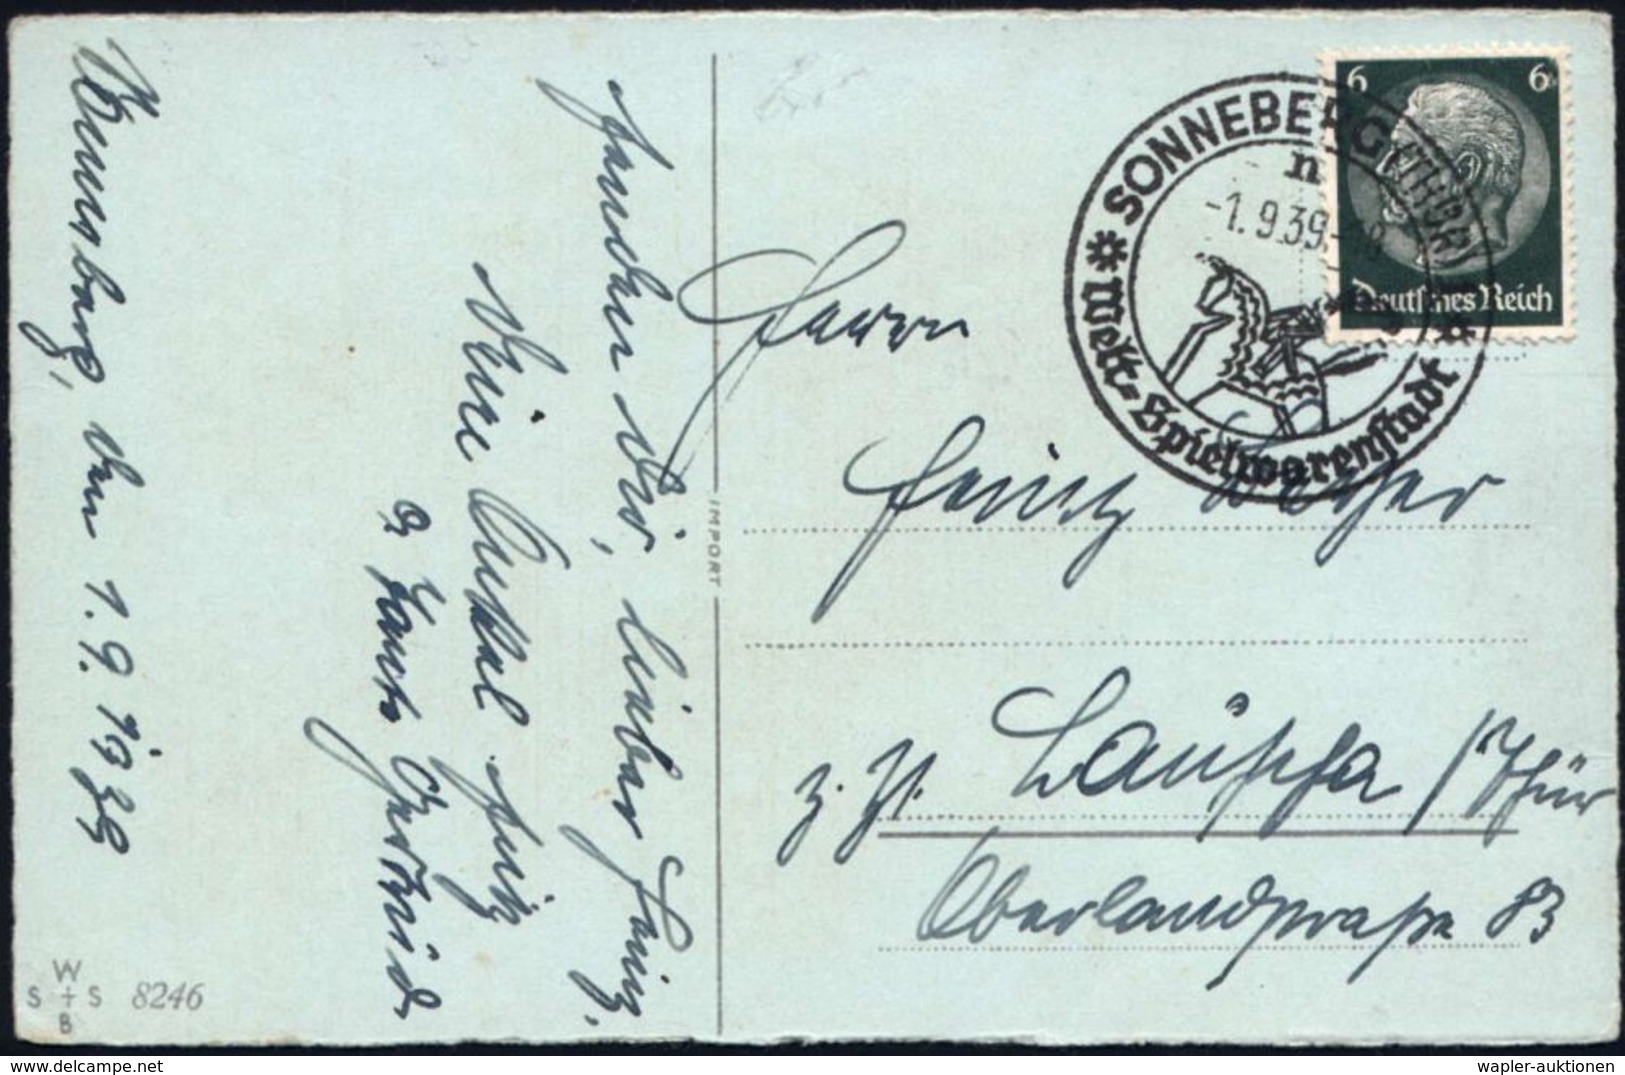 Sonneberg, den 1.9.1939
senden dir, lieber Heinz,
Deine Onkel Heinz
u. Tante Gertrud
IMPORT
W
S + S 8246
B
6 6
Deutsches Reich
SONNEBERG (THÜR) 1
n
-1.9.39.-
Welt-Spielwarenstadt
Herrn
Heinz
z. Zt. Lauscha / Thür
Oberlandstraße 83
www.delcampe.net
wapler-auktionen